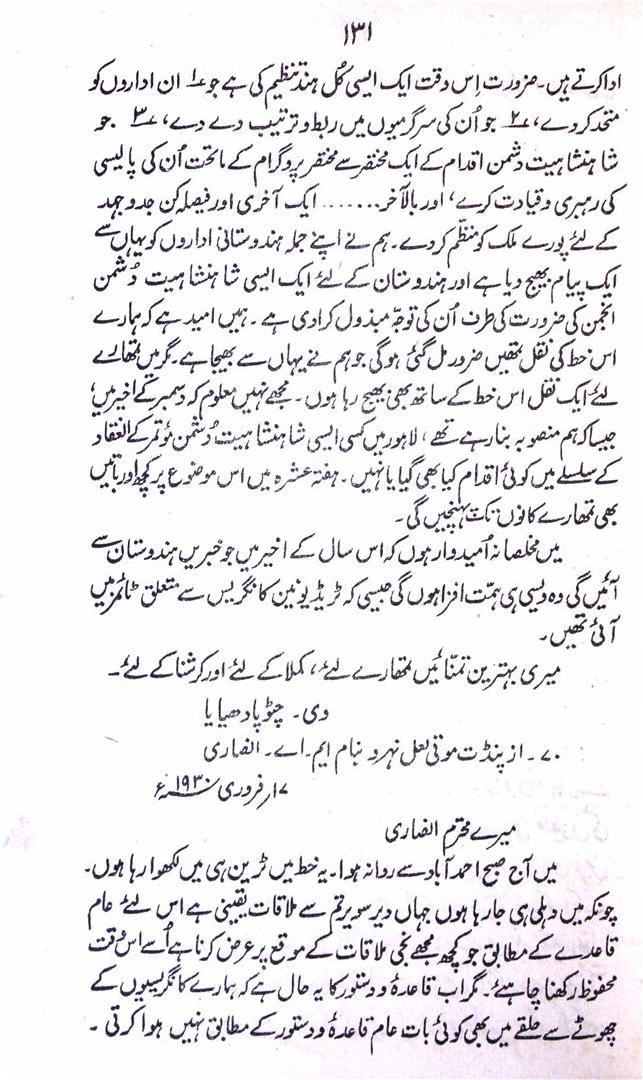 ۱۳۱
ادا کرتے ہیں۔ ضرورت اِس وقت ایک ایسی کُل ہند تنظیم کی ہے جو ۱؎ ان اداروں کو
متحد کر دے، ۲؎ جو اُن کی سرگرمیوں میں ربط و ترتیب دے دے، ۳؎ جو
شاہنشاہیت دشمن اقدام کے ایک مختصر سے مختصر پروگرام کے ماتحت اُن کی پالیسی
کی رہبری و قیادت کرے، اور بالآخر....... ایک آخری اور فیصلہ کن جدوجہد
کے لئے پورے ملک کو منظّم کر دے۔ ہم نے اپنے جملہ ہندوستانی اداروں کو یہاں سے
ایک پیام بھیج دیا ہے اور ہندوستان کے لئے ایک ایسی شاہنشاہیت دُشمن
انجمن کی ضرورت کی طرف اُن کی توجّہ مبذول کرا دی ہے۔ ہمیں امید ہے کہ ہمارے
اس خط کی نقل تمھیں ضرور مل گئی ہوگی جو ہم نے یہاں سے بھیجا ہے۔ مگر میں تمھارے
لئے ایک نقل اس خط کے ساتھ بھی بھیج رہا ہوں۔ مجھے نہیں معلوم کہ دسمبر کے اخیر میں،
جیسا کہ ہم منصوبہ بنا رہے تھے، لاہور میں کسی ایسی شاہنشاہیت دُشمن مؤتمر کے انعقاد
کے سلسلے میں کوئی اقدام کیا بھی گیا یا نہیں۔ ہفتہ عشرہ میں اس موضوع پر کچھ اور باتیں
بھی تمھارے کانوں تک پہنچیں گی۔
میں مخلصانہ اُمیدوار ہوں کہ اس سال کے اخیر میں جو خبریں ہندوستان سے
آئیں گی وہ ویسی ہی ہمّت افزا ہوں گی جیسی کہ ٹریڈ یونین کانگریس سے متعلق ٹائمز میں
آئی تھیں۔
میری بہترین تمنّائیں تمھارے لئے، کملا کے لئے اور کرشنا کے لئے۔
وی۔ چٹوپادھیایا
۷۰۔ از پنڈت موتی لعل نہرو بنام ایم۔ اے۔ انصاری
۱۷ر فروری ۱۹۳۰ء
میرے محترم انصاری
میں آج صبح احمد آباد سے روانہ ہوا۔ یہ خط میں ٹرین ہی میں لکھوا رہا ہوں۔
چونکہ میں دہلی ہی جا رہا ہوں جہاں دیر سویر تم سے ملاقات یقینی ہے اس لئے عام
قاعدے کے مطابق جو کچھ مجھے نجی ملاقات کے موقع پر عرض کرنا ہے اُسے اس وقت
محفوظ رکھنا چاہئے۔ مگر اب قاعدۂ و دستور کا یہ حال ہے کہ ہمارے کانگریسیوں کے
چھوٹے سے حلقے میں بھی کوئی بات عام قاعدۂ و دستور کے مطابق نہیں ہوا کرتی۔